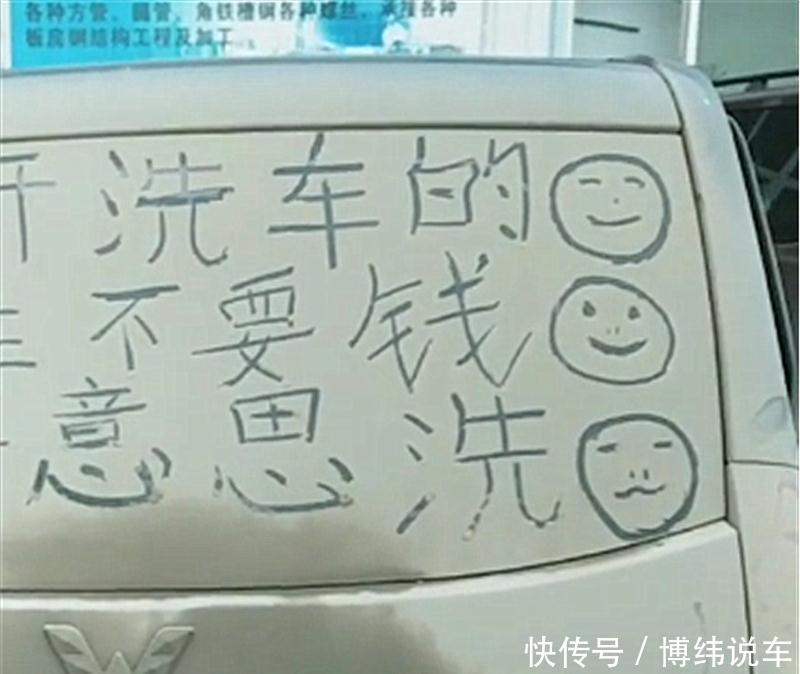 各种方管、圆管、角铁槽钢各种螺丝、承接各种
板房钢结构工程及加工
开洗车的
不要钱
意思洗
快传号 / 博纬说车